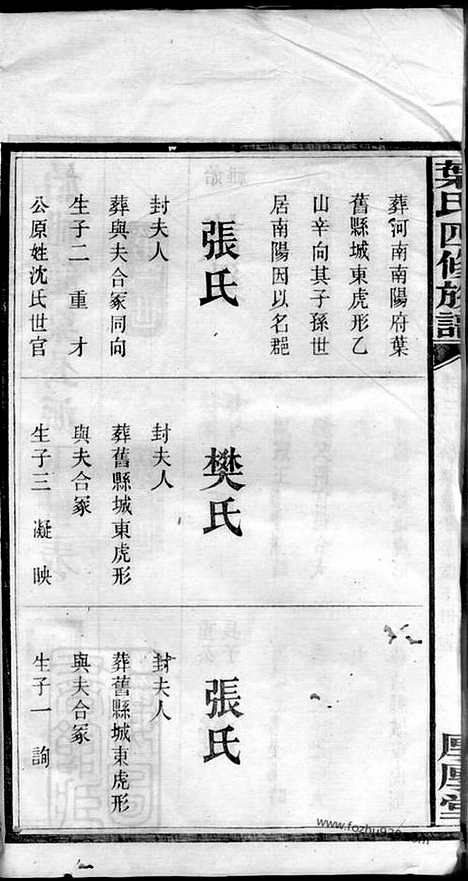 葉氏四修族譜
厚厚堂
葬河南南陽府葉
舊縣城東虎形乙
山辛向其子孫世
居南陽因以名郡
張氏
封夫人
葬與夫合冢同向
生子二 重 才
公原姓沈氏世官
樊氏
封夫人
葬舊縣城東虎形
與夫合冢
生子三 凝 映
張氏
封夫人
葬舊縣城東虎形
與夫合冢
生子一 詢